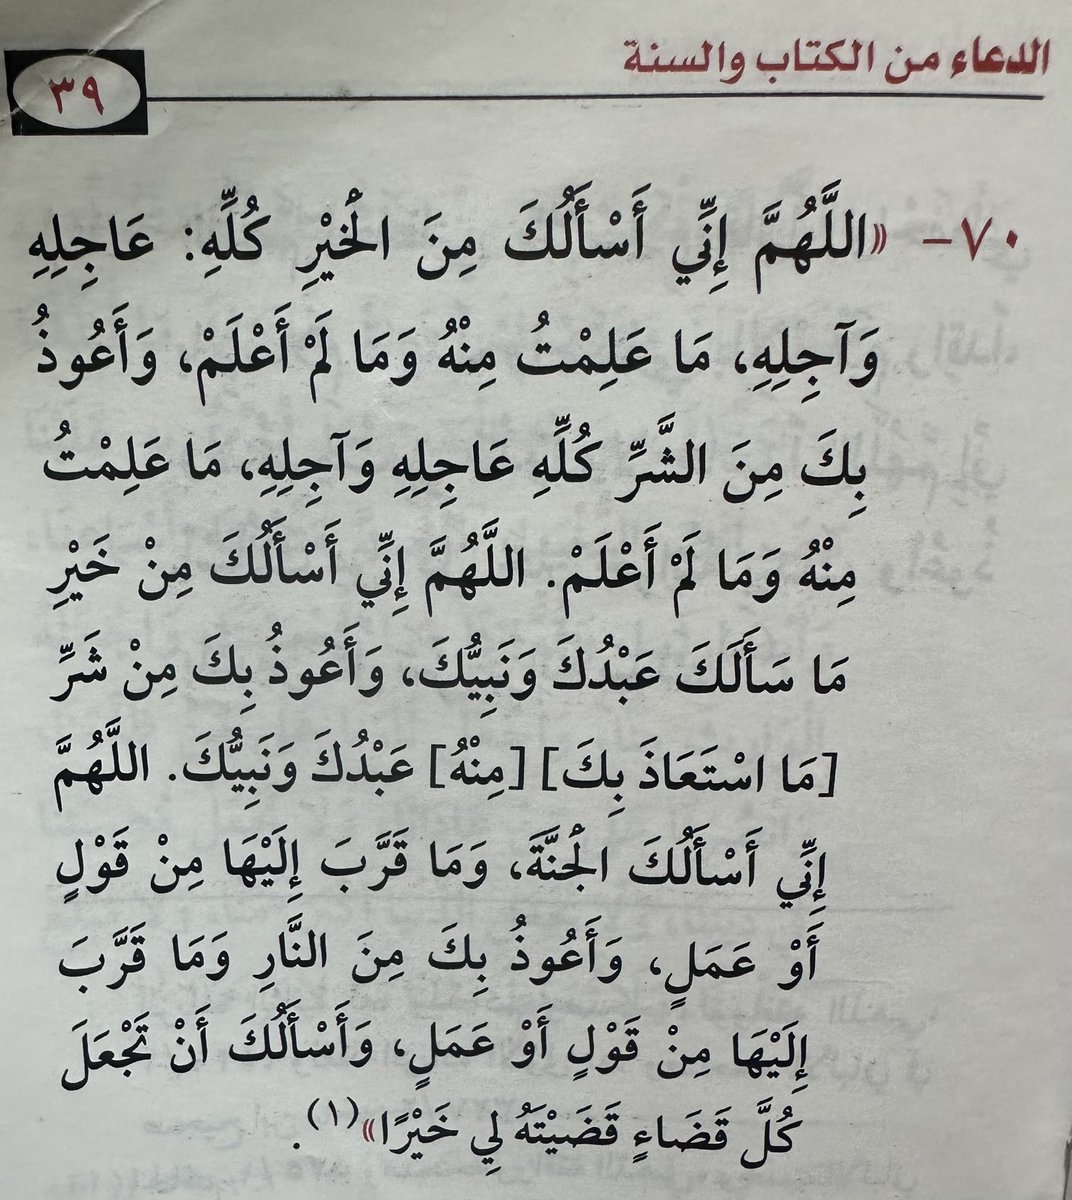 الدعاء من الكتاب والسنة
٣٩
٧٠- «اللَّهُمَّ إِنِّي أَسْأَلُكَ مِنَ الْخَيْرِ كُلِّهِ: عَاجِلِهِ
وَآجِلِهِ، مَا عَلِمْتُ مِنْهُ وَمَا لَمْ أَعْلَمْ، وَأَعُوذُ
بِكَ مِنَ الشَّرِّ كُلِّهِ عَاجِلِهِ وَآجِلِهِ، مَا عَلِمْتُ
مِنْهُ وَمَا لَمْ أَعْلَمْ. اللَّهُمَّ إِنِّي أَسْأَلُكَ مِنْ خَيْرِ
مَا سَأَلَكَ عَبْدُكَ وَنَبِيُّكَ، وَأَعُوذُ بِكَ مِنْ شَرِّ
[مَا اسْتَعَاذَ بِكَ] [مِنْهُ] عَبْدُكَ وَنَبِيُّكَ. اللَّهُمَّ
إِنِّي أَسْأَلُكَ الْجَنَّةَ، وَمَا قَرَّبَ إِلَيْهَا مِنْ قَوْلٍ
أَوْ عَمَلٍ، وَأَعُوذُ بِكَ مِنَ النَّارِ وَمَا قَرَّبَ
إِلَيْهَا مِنْ قَوْلٍ أَوْ عَمَلٍ، وَأَسْأَلُكَ أَنْ تَجْعَلَ
كُلَّ قَضَاءٍ قَضَيْتَهُ لِي خَيْرًا»(١).